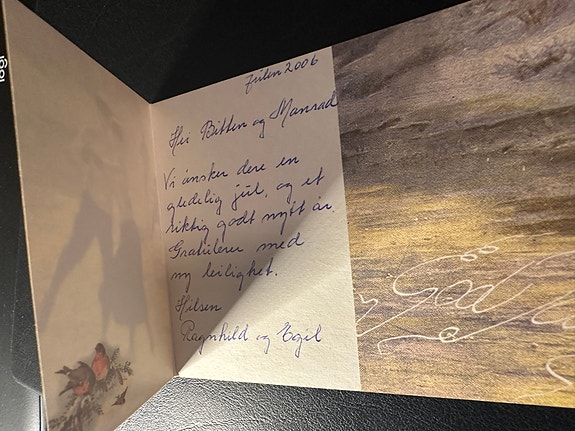 Julen 2006
Hei Bitten og Manrad
Vi ønsker dere en
gledelig jul, og et
riktig godt nytt år.
Gratulerer med
ny leilighet.
Hilsen
Ragnhild og Egil
God
logi